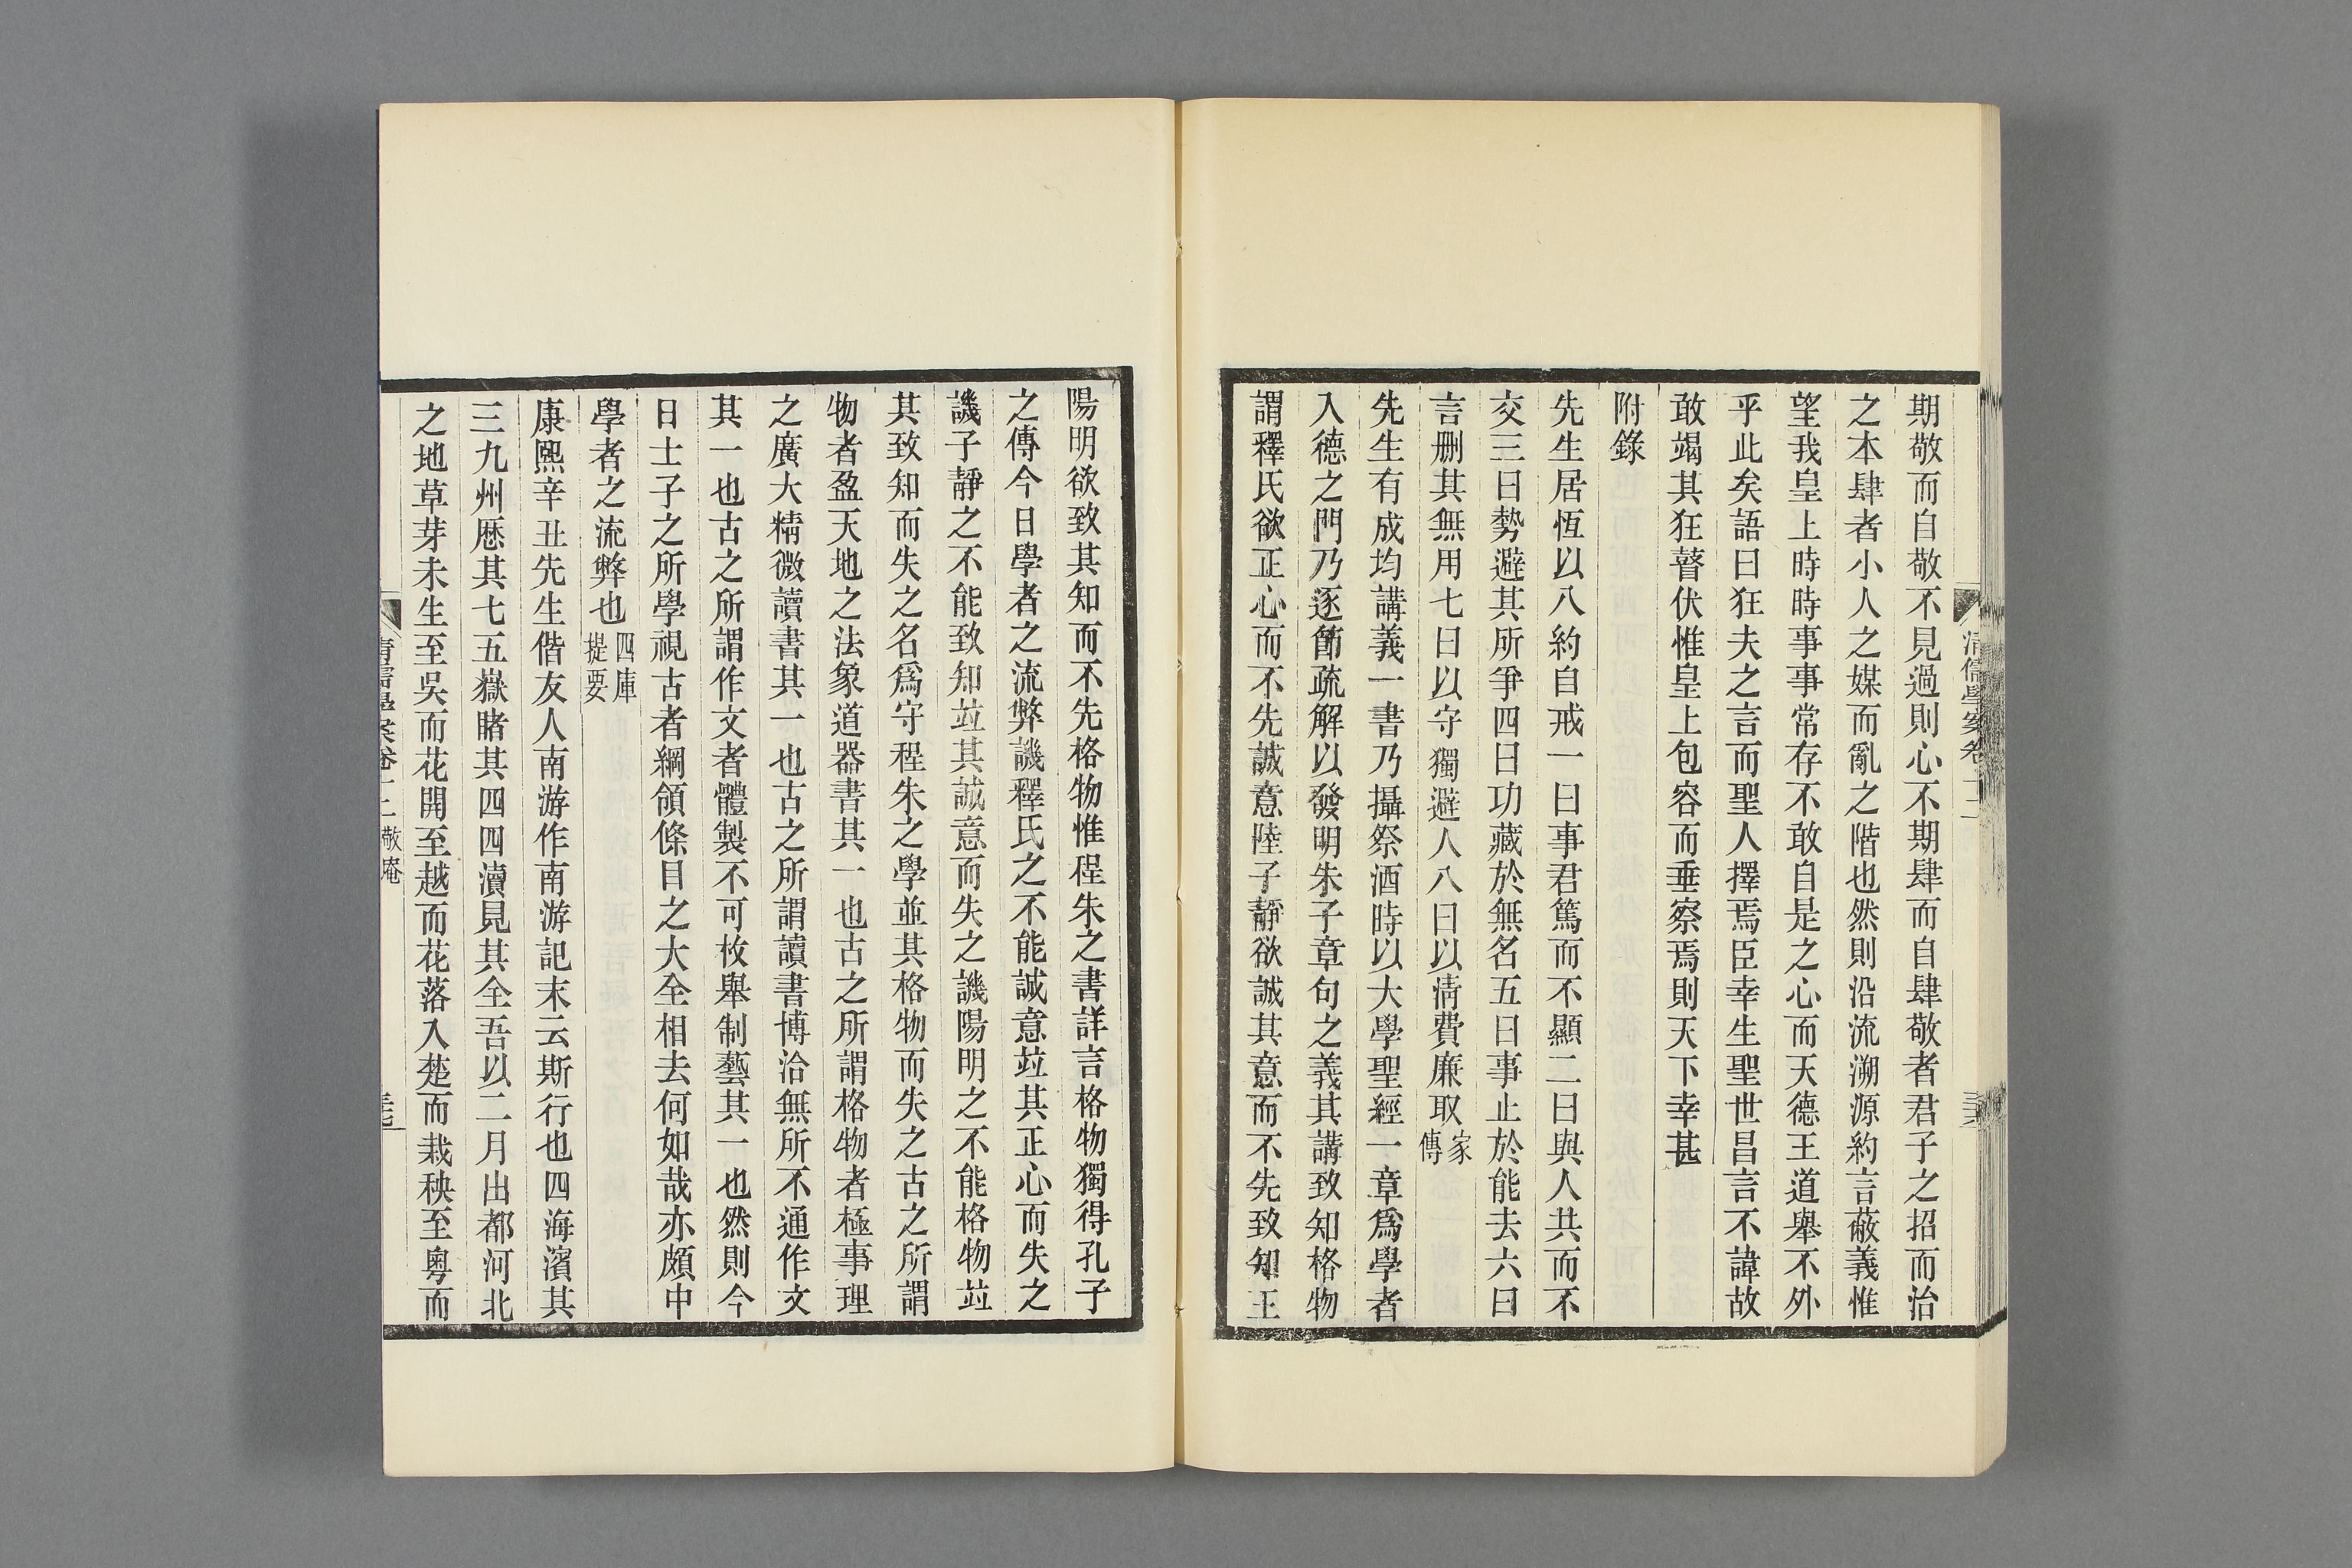 期敬而自敬不見過則心不期肆而自肆敬者君子之招而治
之本肆者小人之媒而亂之階也然則沿流溯源約言蔽義惟
望我皇上時時事事常存不敢自是之心而天德王道舉不外
乎此矣語曰狂夫之言而聖人擇焉臣幸生聖世昌言不諱故
敢竭其狂瞽伏惟皇上包容而垂察焉則天下幸甚
附錄
先生居恆以八約自戒一曰事君篤而不顯二曰與人共而不
交三曰勢避其所爭四曰功藏於無名五曰事止於能去六曰
言删其無用七曰以守獨避人八曰以清費廉取家傳
先生有成均講義一書乃攝祭酒時以大學聖經一章爲學者
入德之門乃逐節疏解以發明朱子章句之義其講致知格物
謂釋氏欲正心而不先誠意陸子靜欲誠其意而不先致知王
陽明欲致其知而不先格物惟程朱之書詳言格物獨得孔子
之傳今日學者之流弊譏釋氏之不能誠意竝其正心而失之
譏子靜之不能致知竝其誠意而失之譏陽明之不能格物竝
其致知而失之名爲守程朱之學並其格物而失之古之所謂
物者盈天地之法象道器書其一也古之所謂格物者極事理
之廣大精微讀書其一也古之所謂讀書博洽無所不通作文
其一也古之所謂作文者體製不可枚舉制藝其一也然則今
日士子之所學視古者綱領條目之大全相去何如哉亦頗中
學者之流弊也四庫提要
康熙辛丑先生偕友人南游作南游記末云斯行也四海濱其
三九州厯其七五嶽睹其四四瀆見其全吾以二月出都河北
之地草芽未生至吳而花開至越而花落入楚而栽秧至粵而